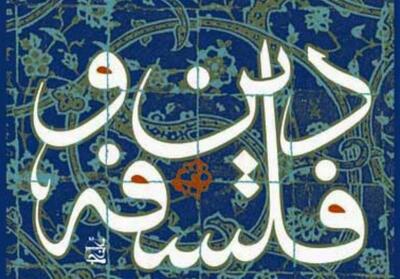 دین و
فلسفه